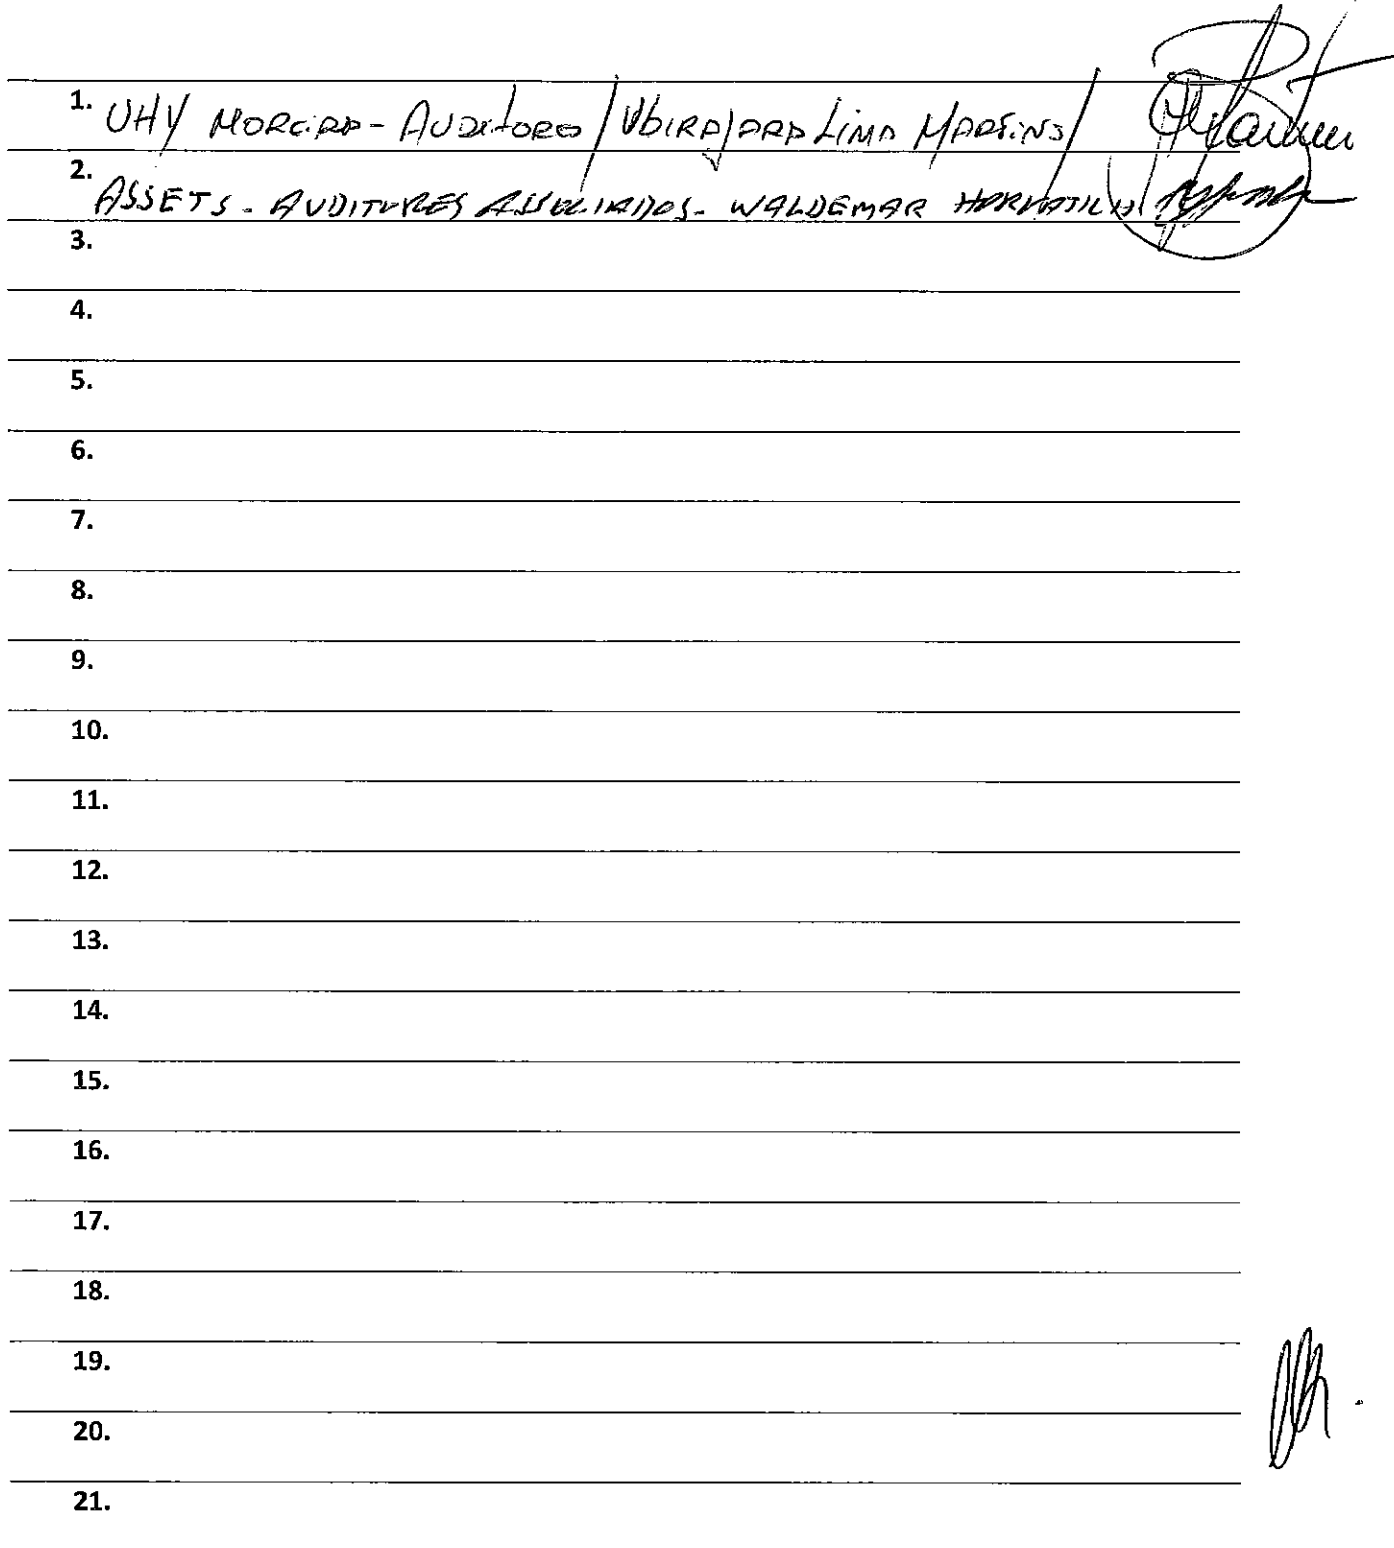 1. UHY MOREIRA - AUDITORES / UBIRAJARA LIMA MARTINS /
2. ASSETS - AUDITORES ASSOCIADOS - WALDEMAR
3.
4.
5.
6.
7.
8.
9.
10.
11.
12.
13.
14.
15.
16.
17.
18.
19.
20.
21.